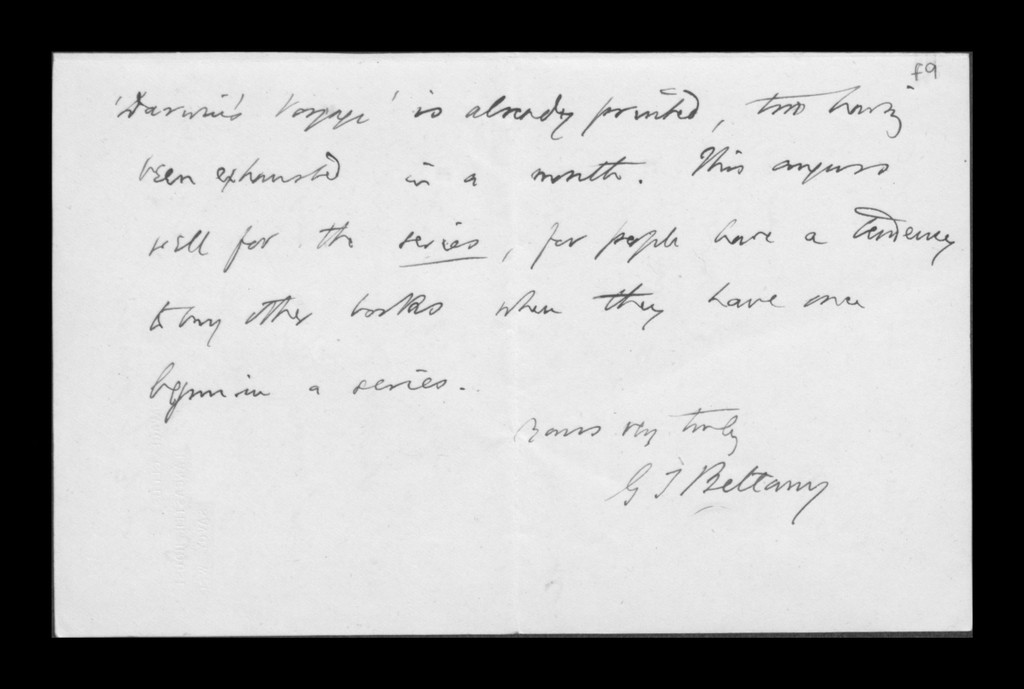 f9
'Darwin's Voyage' is already printed, two having
been exhausted in a month. This augurs
well for the series, for people have a tendency
to buy other books when they have once
begun in a series.
Yours very truly
G T Bettany